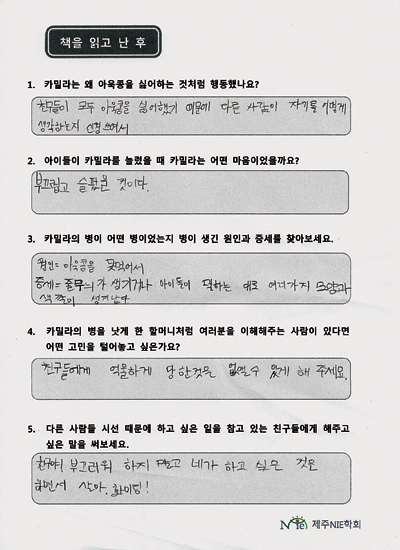 책을 읽고 난 후
1. 카밀라는 왜 아욱콩을 싫어하는 것처럼 행동했나요?
친구들이 모두 아욱콩을 싫어했기 때문에 다른 사람이 자기를 어떻게
생각하는지 신경쓰여서
2. 아이들이 카밀라를 놀렸을 때 카밀라는 어떤 마음이었을까요?
부끄럽고 슬펐을 것이다.
3. 카밀라의 병이 어떤 병이었는지 병이 생긴 원인과 증세를 찾아보세요.
원인= 아욱콩을 못먹어서
증세= 줄무늬가 생기거나 아이들이 말하는 대로 여러가지 모양과
생겨난다
4. 카밀라의 병을 낫게 한 할머니처럼 여러분을 이해해주는 사람이 있다면
어떤 고민을 털어놓고 싶은가요?
친구들에게 억울하게 당한것을 없앨수 있게 해 주세요.
5. 다른 사람들 시선 때문에 하고 싶은 일을 참고 있는 친구들에게 해주고
싶은 말을 써보세요.
친구야! 부끄러워 하지 말고 네가 하고 싶은 것은
하면서 살아. 화이팅!
NIE 제주NIE학회